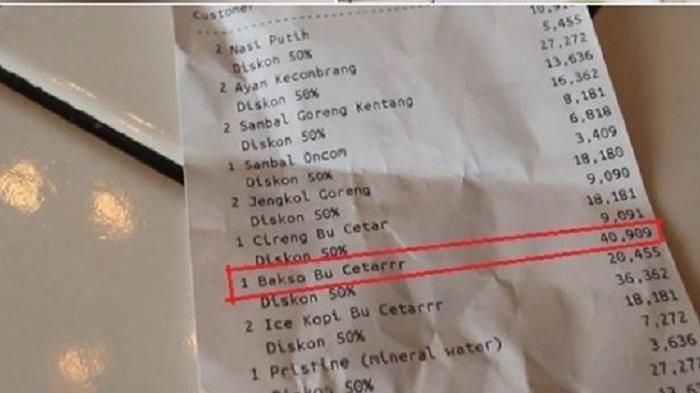 Customer
2 Nasi Putih
Diskon 50% 5,455
2 Ayam Kecombrang 27,272
Diskon 50% 13,636
2 Sambal Goreng Kentang 16,362
Diskon 50% 8,181
1 Sambal Oncom 6,818
Diskon 50% 3,409
2 Jengkol Goreng 18,180
Diskon 50% 9,090
1 Cireng Bu Cetar 18,181
Diskon 50% 9,091
1 Bakso Bu Cetarrr 40,909
Diskon 50% 20,455
2 Ice Kopi Bu Cetarrr 36,362
Diskon 50% 18,181
1 Pristine (mineral water) 7,272
Diskon 50% 3,636
27,272